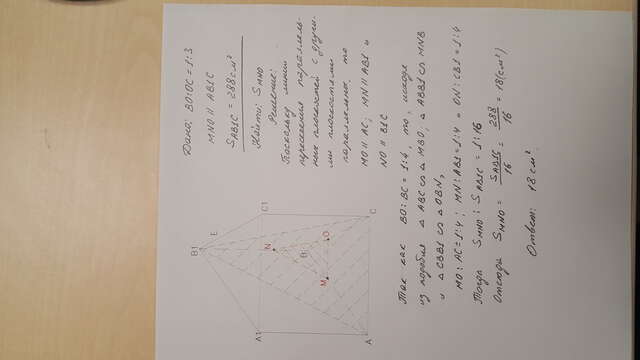 B1
E
A1
C1
N
B
M
O
A
C
Дано: BO:OC = 1:3
MNO || AB1C
SAB1C = 288 см²
Найти: SMNO
Решение:
Поскольку линии
пересечения параллель-
ных плоскостей с други-
ми плоскостями
параллельны, то
MO || AC; MN || AB1 и
NO || B1C
Так как BO : BC = 1:4, то, исходя
из подобия △ ABC ∽ △ MBO, △ ABB1 ∽ MNB
и △ CBB1 ∽ △ OBN,
MO : AC = 1:4; MN : AB1 = 1:4 и ON : CB1 = 1:4
Тогда SMNO : SAB1C = 1:16
Отсюда SMNO = SAB1C/16 = 288/16 = 18 (см²)
Ответ: 18 см².